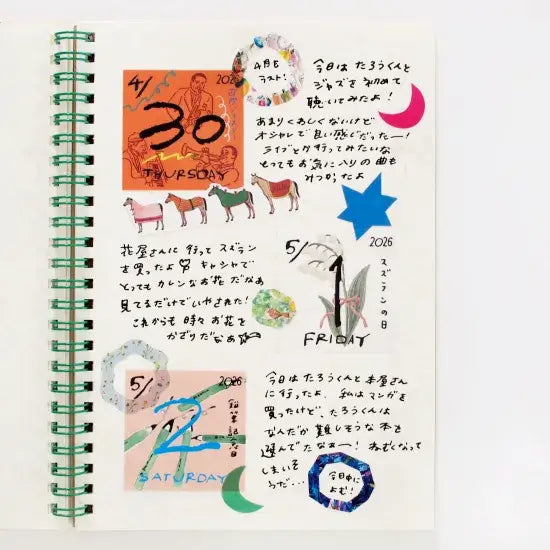 4/
2026
30
THURSDAY
4月も
ラスト!
今日は たろうくんと
ジャズを 初めて
聴いてみたよ!
あまりくわしくないけど
オシャレで良い感じだったー!
ライブとか行ってみたいな
とってもお気に入りの曲も
みつかったよ
花屋さんに行って スズラン
を買ったよ♡ キャシャで
とっても カレンなお花だなぁ
見てるだけでいやされた!
これからも 時々 お花を
かざりたいなぁ
5/
2026
1
スズランの日
FRIDAY
5/
2026
2
鉛筆記念日
SATURDAY
今日は たろうくんと 本屋さん
に行ったよ. 私はマンガを
買ったけど、たろうくんは
なんだか 難しそうな 本を
選んでたなぁー! ねむくなって
しまいそ
うだ…
今日中に
よむ!